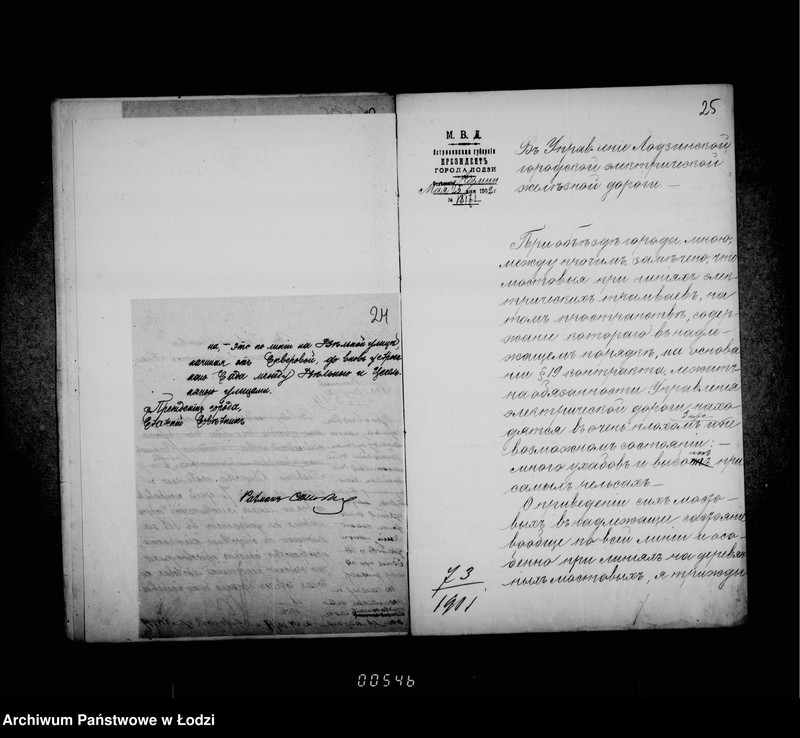 24
на, – это по линіи на Зельной улицѣ
начиная отъ Скверовой, до вновь устроен-
наго Сада между Зельною и
улицами.
Президентъ города,
Статскій Совѣтникъ
25
М. В. Д.
Петроковская губернія
ПРЕЗИДЕНТЪ
ГОРОДА ЛОДЗИ
Мая 15 дня 1902 г.
№
Въ Управленіе Лодзинской
городской электрической
желѣзной дороги. —
При объѣздѣ города, мною,
между прочимъ, замѣчено, что
мостовыя при линіяхъ элек-
трическихъ трамваевъ, на
томъ пространствѣ, содер-
жаніе котораго въ надле-
жащемъ порядкѣ, на основа-
ніи § 19 контракта, лежитъ
на обязанности Управленія
электрической дороги, нахо-
дятся въ очень плохомъ и не
возможномъ состояніи: —
много ухабовъ и при
самыхъ рельсахъ. —
О приведеніи сихъ мосто-
выхъ въ надлежащее состояніе
вообще по всей линіи и осо-
бенно при линіяхъ на деревян-
ныхъ мостовыхъ, я трижды
73
1901
00546
Archiwum Państwowe w Łodzi